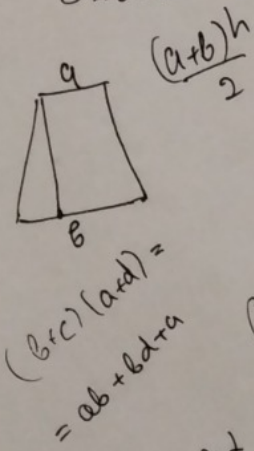 a
(a+b)h
2
b
(b+c)(a+d)=
=ab+bd+a